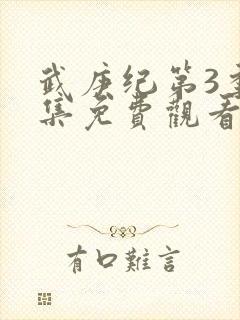 武庚纪第3季
集免費觀看
有口難言